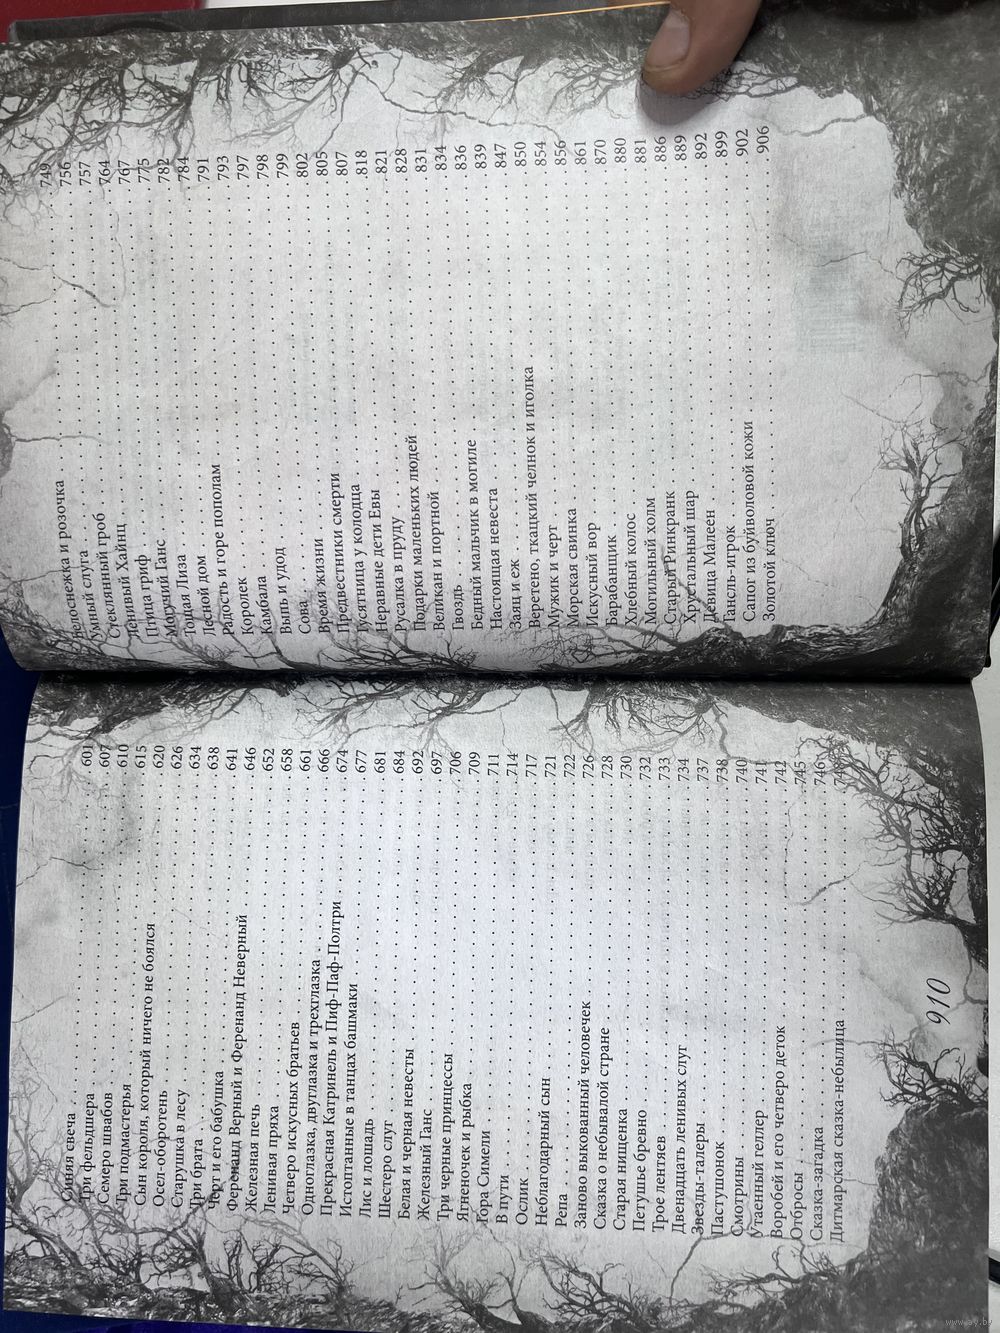 Синяя свеча . . . . . 601
Три фельдшера . . . . . 607
Семеро швабов . . . . . 610
Три подмастерья . . . . . 615
Сын короля, который ничего не боялся . . . . . 620
Осел-оборотень . . . . . 626
Старушка в лесу . . . . . 634
Три брата . . . . . 638
Черт и его бабушка . . . . . 641
Ференанд Верный и Ференанд Неверный . . . . . 646
Железная печь . . . . . 652
Ленивая пряха . . . . . 658
Четверо искусных братьев . . . . . 661
Одноглазка, двуглазка и трехглазка . . . . . 666
Прекрасная Катринель и Пиф-Паф-Полтри . . . . . 674
Истоптанные в танцах башмаки . . . . . 677
Лис и лошадь . . . . . 681
Шестеро слуг . . . . . 684
Белая и черная невесты . . . . . 692
Железный Ганс . . . . . 697
Три черные принцессы . . . . . 706
Ягненочек и рыбка . . . . . 709
Гора Симели . . . . . 711
В пути . . . . . 714
Ослик . . . . . 717
Неблагодарный сын . . . . . 721
Репа . . . . . 722
Заново выкованный человечек . . . . . 726
Сказка о небывалой стране . . . . . 728
Старая нищенка . . . . . 730
Петушье бревно . . . . . 732
Трое лентяев . . . . . 733
Двенадцать ленивых слуг . . . . . 734
Звезды-талеры . . . . . 737
Пастушонок . . . . . 738
Смотрины . . . . . 740
Утаенный геллер . . . . . 741
Воробей и его четверо деток . . . . . 742
Отбросы . . . . . 745
Сказка-загадка . . . . . 746
Дитмарская сказка-небылица . . . . .
910
Белоснежка и розочка . . . . . 749
Умный слуга . . . . . 756
Стеклянный гроб . . . . . 757
Ленивый Хайнц . . . . . 764
Птица гриф . . . . . 767
Могучий Ганс . . . . . 775
Тощая Лиза . . . . . 782
Лесной дом . . . . . 784
Радость и горе пополам . . . . . 791
Королек . . . . . 793
Камбала . . . . . 797
Выпь и удод . . . . . 798
Сова . . . . . 799
Время жизни . . . . . 802
Предвестники смерти . . . . . 805
Гусятница у колодца . . . . . 807
Неравные дети Евы . . . . . 818
Русалка в пруду . . . . . 821
Подарки маленьких людей . . . . . 828
Великан и портной . . . . . 831
Гвоздь . . . . . 834
Бедный мальчик в могиле . . . . . 836
Настоящая невеста . . . . . 839
Заяц и еж . . . . . 847
Веретено, ткацкий челнок и иголка . . . . . 850
Мужик и черт . . . . . 854
Морская свинка . . . . . 856
Искусный вор . . . . . 861
Барабанщик . . . . . 870
Хлебный колос . . . . . 880
Могильный холм . . . . . 881
Старый Ринкранк . . . . . 886
Хрустальный шар . . . . . 889
Девица Малеен . . . . . 892
Гансль-игрок . . . . . 899
Сапог из буйволовой кожи . . . . . 902
Золотой ключ . . . . . 906